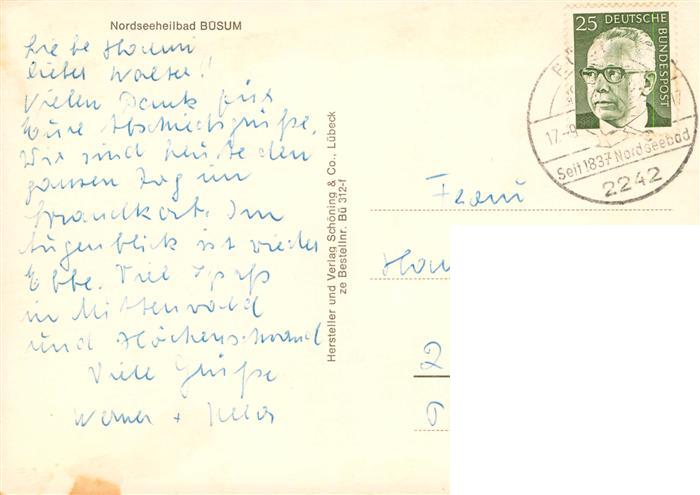 Nordseeheilbad BÜSUM
Liebe Hanni
lieber Walter!!
Vielen Dank für
Eure Abschiedsgrüße.
Wir sind heute den
ganzen Tag im
Strandkorb. Im
Augenblick ist wieder
Ebbe. Viel Spaß
in Mittenwald
und Höchenschwand
Viele Grüße
Werner +
Hersteller und Verlag Schöning & Co., Lübeck
ze Bestellnr. Bü 312-f
25 DEUTSCHE
BUNDESPOST
17.-9
Seit 1837 Nordseebad
2242
Frau
2